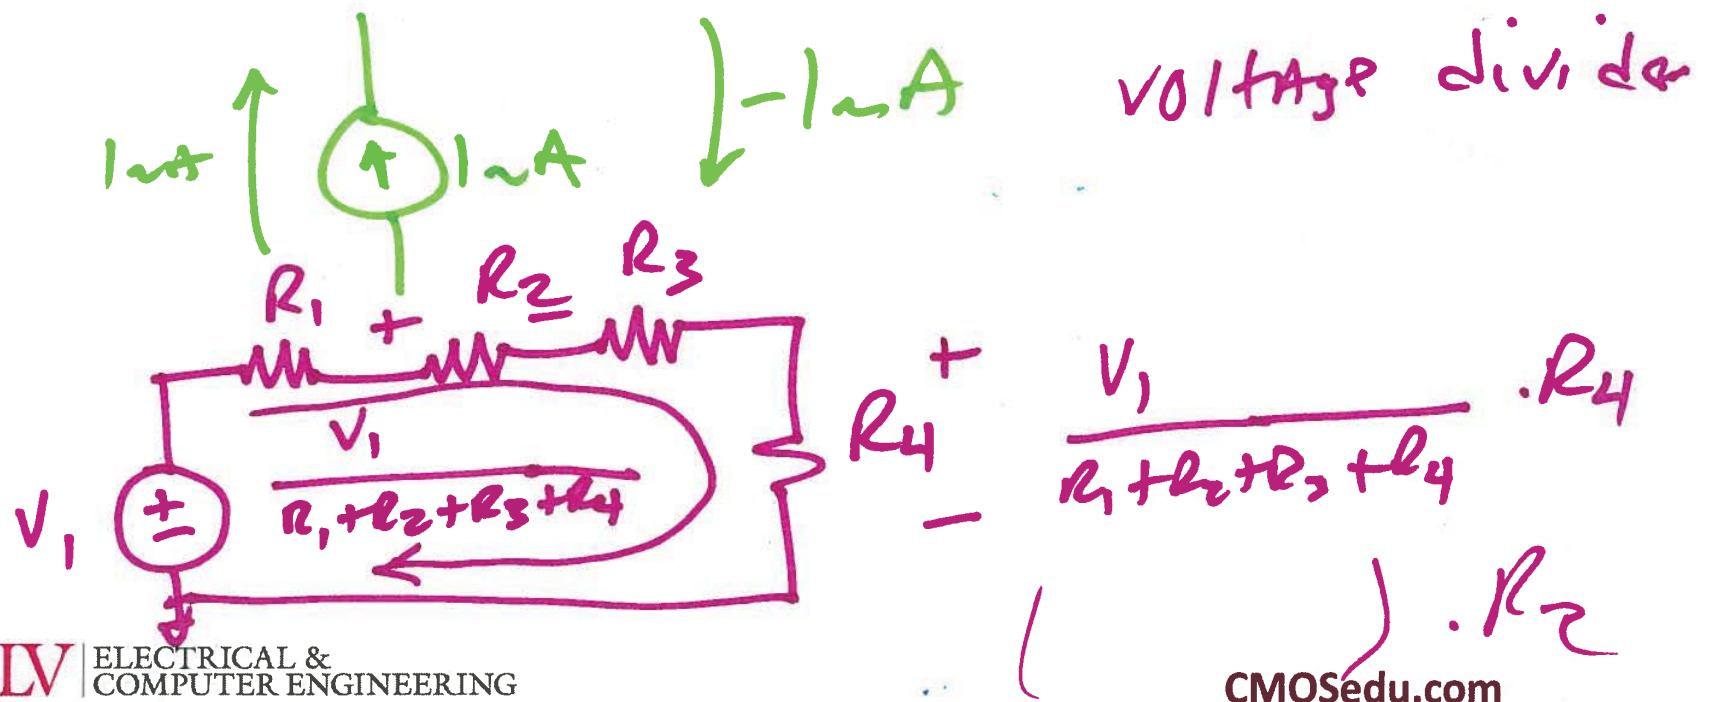 voltage divider
1mA
1mA
-1mA
R1
+
R2
R3
V1
R1+R2+R3+R4
V1
+
-
R4
+
-
V1
R1+R2+R3+R4
.R4
( ) .R2
LV ELECTRICAL &
COMPUTER ENGINEERING
CMOSedu.com